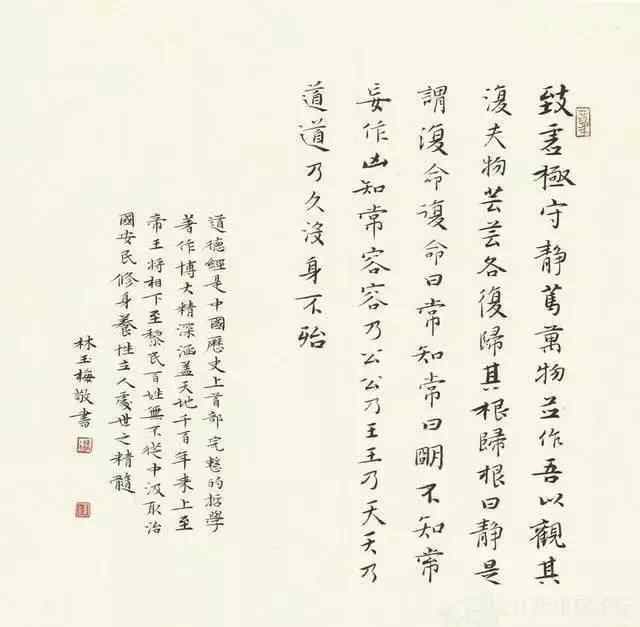 致虛極守靜篤萬物並作吾以觀其
復夫物芸芸各復歸其根歸根曰靜是
謂復命復命曰常知常曰朙不知常
妄作凶知常容容乃公公乃王王乃天天乃
道道乃久沒身不殆
道德經是中國歷史上首部完整的哲學
著作博大精深涵蓋天地千百年來上至
帝王將相下至黎民百姓無不從中汲取治
國安民修身養性立人處世之精髓
林玉梅敬書